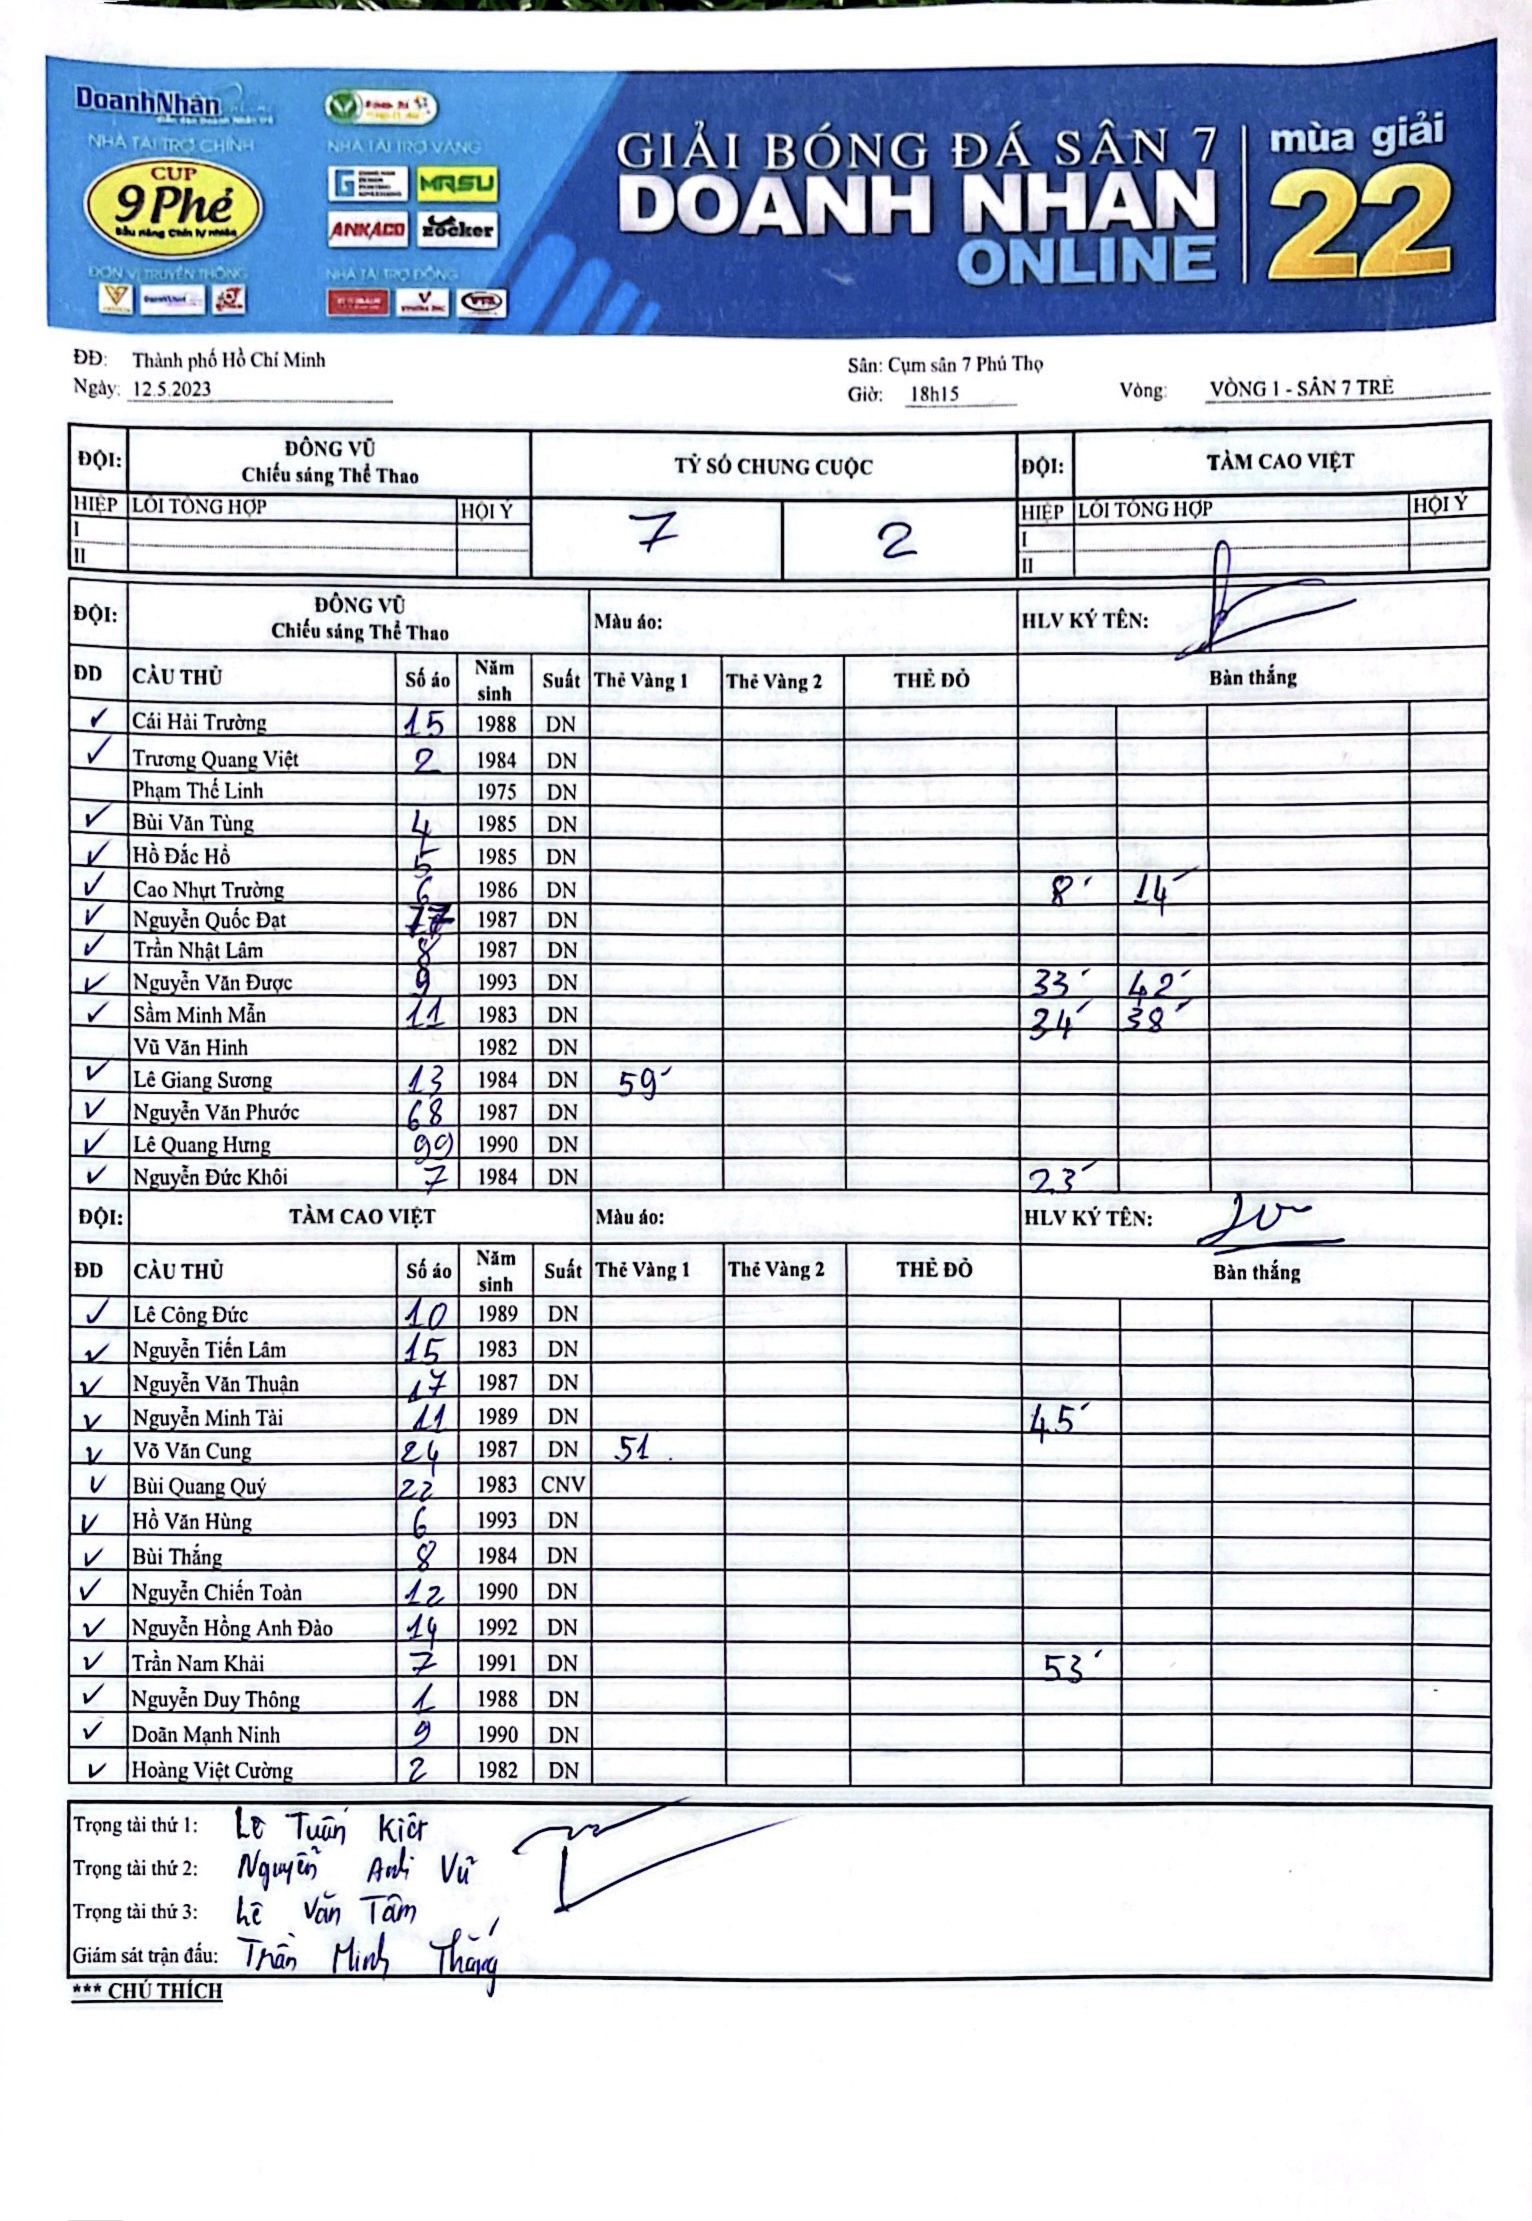 DoanhNhân
NHÀ TÀI TRỢ CHÍNH
CUP
9 Phẻ
NHÀ TÀI TRỢ VÀNG
MRSU
ANKACO zocker
ĐƠN VỊ TRUYỀN THÔNG
NHÀ TÀI TRỢ ĐỒNG
VTB
GIẢI BÓNG ĐÁ SÂN 7
DOANH NHAN
ONLINE
mùa giải
22
ĐĐ: Thành phố Hồ Chí Minh Sân: Cụm sân 7 Phú Thọ
Ngày: 12.5.2023 Giờ: 18h15 Vòng: VÒNG 1 - SÂN 7 TRẺ
ĐỘI: ĐÔNG VŨ Chiếu sáng Thể Thao TỶ SỐ CHUNG CUỘC ĐỘI: TẦM CAO VIỆT
HIỆP LỖI TỔNG HỢP HỘI Ý 7 2 HIỆP LỖI TỔNG HỢP HỘI Ý
I I
II II
ĐỘI: ĐÔNG VŨ Chiếu sáng Thể Thao Màu áo: HLV KÝ TÊN:
ĐD CẦU THỦ Số áo Năm sinh Suất Thẻ Vàng 1 Thẻ Vàng 2 THẺ ĐỎ Bàn thắng
✓ Cái Hải Trường 15 1988 DN
✓ Trương Quang Việt 2 1984 DN
Phạm Thế Linh 1975 DN
✓ Bùi Văn Tùng 4 1985 DN
✓ Hồ Đắc Hồ 5 1985 DN
✓ Cao Nhựt Trường 6 1986 DN 8' 14'
✓ Nguyễn Quốc Đạt 77 1987 DN
✓ Trần Nhật Lâm 8 1987 DN
✓ Nguyễn Văn Được 9 1993 DN 33' 42'
✓ Sầm Minh Mẫn 11 1983 DN 34' 38'
Vũ Văn Hinh 1982 DN
✓ Lê Giang Sương 13 1984 DN 59'
✓ Nguyễn Văn Phước 68 1987 DN
✓ Lê Quang Hưng 99 1990 DN
✓ Nguyễn Đức Khôi 7 1984 DN 23'
ĐỘI: TẦM CAO VIỆT Màu áo: HLV KÝ TÊN:
ĐD CẦU THỦ Số áo Năm sinh Suất Thẻ Vàng 1 Thẻ Vàng 2 THẺ ĐỎ Bàn thắng
✓ Lê Công Đức 10 1989 DN
✓ Nguyễn Tiến Lâm 15 1983 DN
✓ Nguyễn Văn Thuận 17 1987 DN
✓ Nguyễn Minh Tài 11 1989 DN 45'
✓ Võ Văn Cung 24 1987 DN 51
✓ Bùi Quang Quý 22 1983 CNV
✓ Hồ Văn Hùng 6 1993 DN
✓ Bùi Thắng 8 1984 DN
✓ Nguyễn Chiến Toàn 12 1990 DN
✓ Nguyễn Hồng Anh Đào 14 1992 DN
✓ Trần Nam Khải 7 1991 DN 53'
✓ Nguyễn Duy Thông 1 1988 DN
✓ Doãn Mạnh Ninh 9 1990 DN
✓ Hoàng Việt Cường 2 1982 DN
Trọng tài thứ 1: Lê Tuấn Kiệt
Trọng tài thứ 2: Nguyễn Anh Vũ
Trọng tài thứ 3: Lê Văn Tâm
Giám sát trận đấu: Trần Minh Thắng
*** CHÚ THÍCH